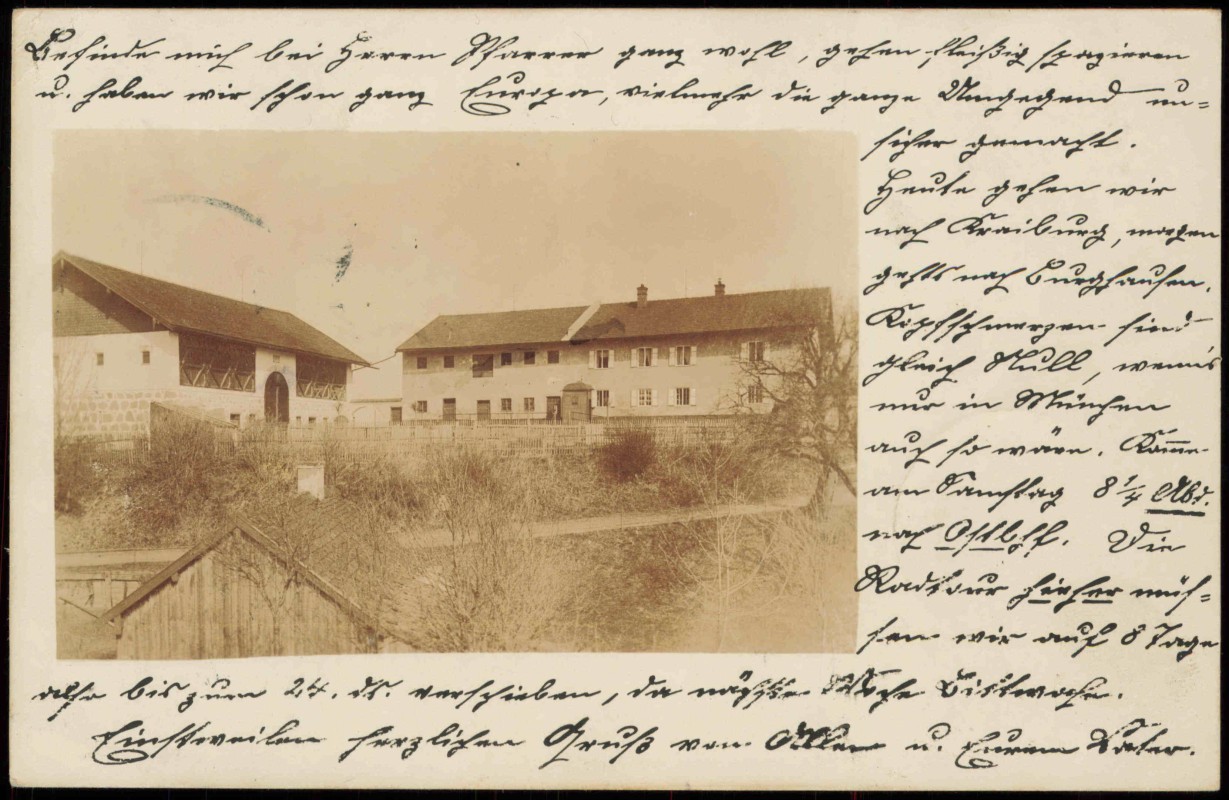 Befinde mich bei Herrn Pfarrer ganz wohl, gehen fleißig spazieren
u. haben wir schon ganz Europa, vielmehr die ganze Umgegend un=
sicher gemacht.
Heute gehen wir
nach Kraiburg, morgen
gehts nach Burghausen.
Kopfschmerzen sind
gleich Null, wenn's
nur in München
auch so wäre. Komme
am Samstag 8 1/4 Abd.
nach Ostbhf. Die
Radtour hierher müs=
sen wir auf 8 Tage
also bis zum 24. ds. verschieben, da nächste Woche Bittwoche.
Einstweilen herzlichen Gruß von Allen u. Eurem Vater.